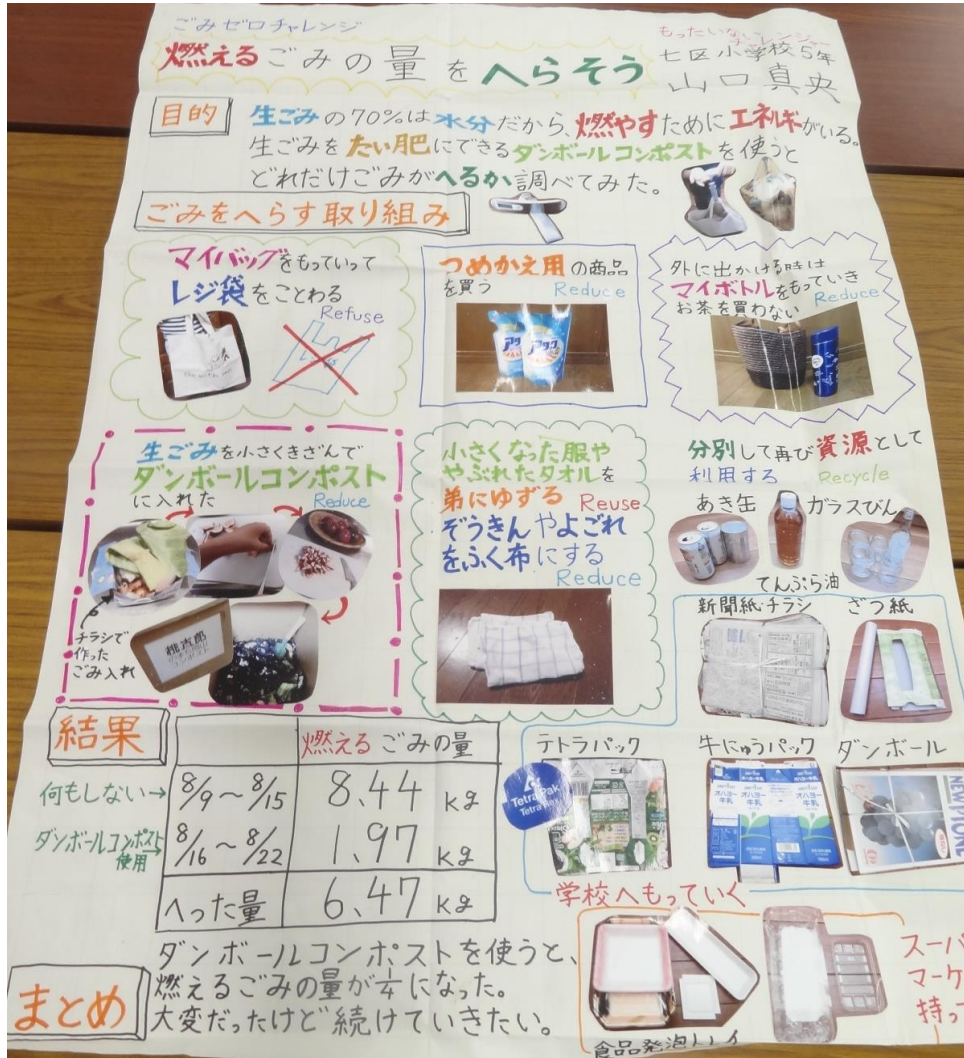 ごみゼロチャレンジ
燃えるごみの量をへらそう
もったいないチャレンジ
七区小学校5年
山口真央
目的
生ごみの70%は水分だから、燃やすためにエネルギーがいる。
生ごみをたい肥にできるダンボールコンポストを使うと
どれだけごみがへるか調べてみた。
ごみをへらす取り組み
マイバッグをもっていって
レジ袋をことわる
Refuse
つめかえ用の商品
を買う Reduce
アタック
アタック
外に出かける時は
マイボトルをもっていき
お茶を買わない Reduce
生ごみを小さくきざんで
ダンボールコンポスト
に入れた Reduce
チラシで
作った
ごみ入れ
桃吉郎
小さくなった服や
やぶれたタオルを
弟にゆずる Reuse
ぞうきんやよごれ
をふく布にする
Reduce
分別して再び資源として
利用する Recycle
あき缶 ガラスびん
てんぷら油
新聞紙・チラシ ざつ紙
テトラパック 牛にゅうパック ダンボール
Tetra Pak
オハヨー
牛乳
オハヨー
牛乳
NEW PIONE
学校へもっていく
結果
燃えるごみの量
何もしない→ 8/9~8/15 8.44 kg
ダンボールコンポスト使用→ 8/16~8/22 1.97 kg
へった量 6.47 kg
まとめ
ダンボールコンポストを使うと、
燃えるごみの量が1/4になった。
大変だったけど続けていきたい。
食品発泡トレイ
スーパ
マーケ
持っ